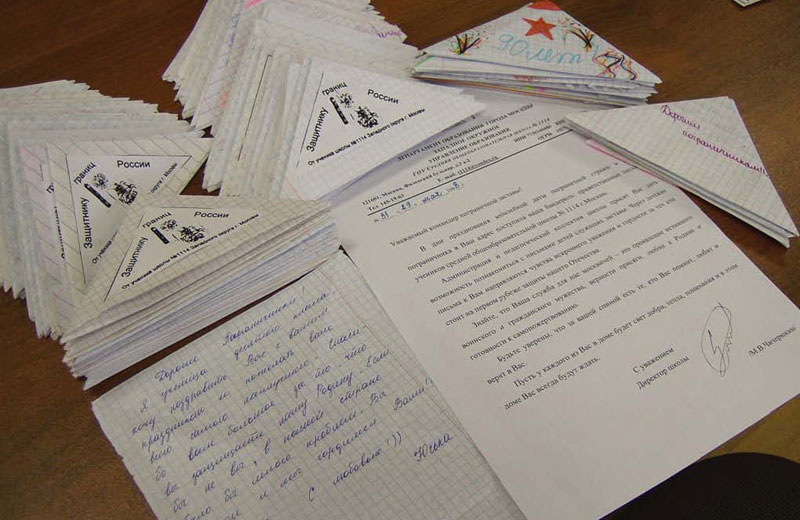 90 лет
Дорогим
пограничникам!!
Защитнику границ
России
От ученика школы №1114 Западного округа г. Москвы
Защитнику границ
России
От ученика школы №1114 Западного округа г. Москвы
Защитнику границ
России
От ученика школы №1114 Западного округа г. Москвы
ДЕПАРТАМЕНТ ОБРАЗОВАНИЯ ГОРОДА МОСКВЫ
ЗАПАДНОЕ ОКРУЖНОЕ
УПРАВЛЕНИЕ ОБРАЗОВАНИЯ
121601, Москва, Филевский бульвар
Тел. 145-19-63
Уважаемый командир пограничной заставы!
В дни празднования юбилейной даты пограничной службы
пограничника в Ваш адрес поступили наша бандероль с приветственными
учеников средней общеобразовательной школы № 1114 г. Москвы.
Администрация и педагогический коллектив школы просят Вас дать
возможность познакомиться с письмами детей служащих заставы. Через детские
письма к Вам направляются чувства искреннего уважения и гордости за тех кто
стоит на первом рубеже защиты нашего Отечества.
Знайте, что Ваша служба для нас москвичей - это проявление истинного
воинского и гражданского мужества, верности присяги, любви к Родине и
готовности к самопожертвованию.
Будьте уверены, что за вашей спиной есть те, кто Вас помнит, любит и
верит в Вас.
Пусть у каждого из Вас в доме будет свет добра, тепла, понимания и в этом
доме Вас всегда будут ждать.
С уважением
Директор школы
/М.В.
Дорогие Пограничники
Я ученица данного класса.
хочу поздравить Вас с вашим
праздником и пожелать вам
всего самого наилучшего. Спаси
бо вам большое за то что
вы защищаете нашу Родину. Если
бы не вы, в нашей стране
было бы много проблем. Вы
Вами!
С любовью!))
Юлька